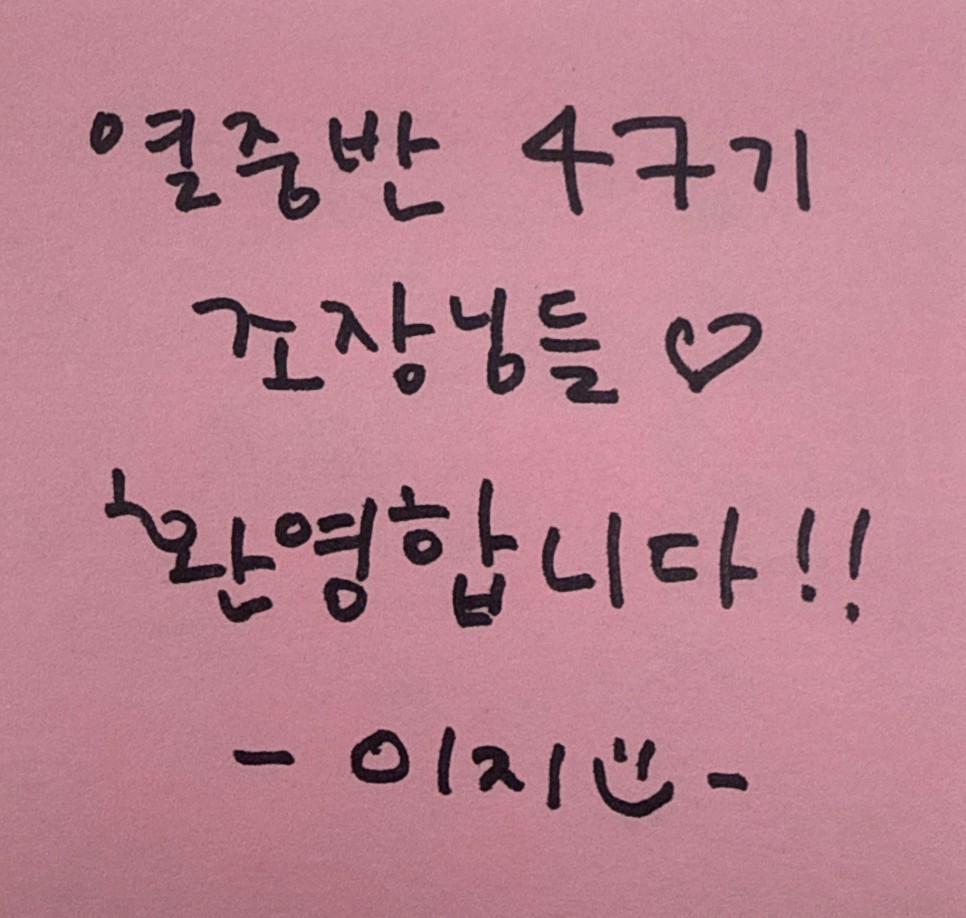 열중반 47기
조장님들 ♡
환영합니다!!
- 이지 -